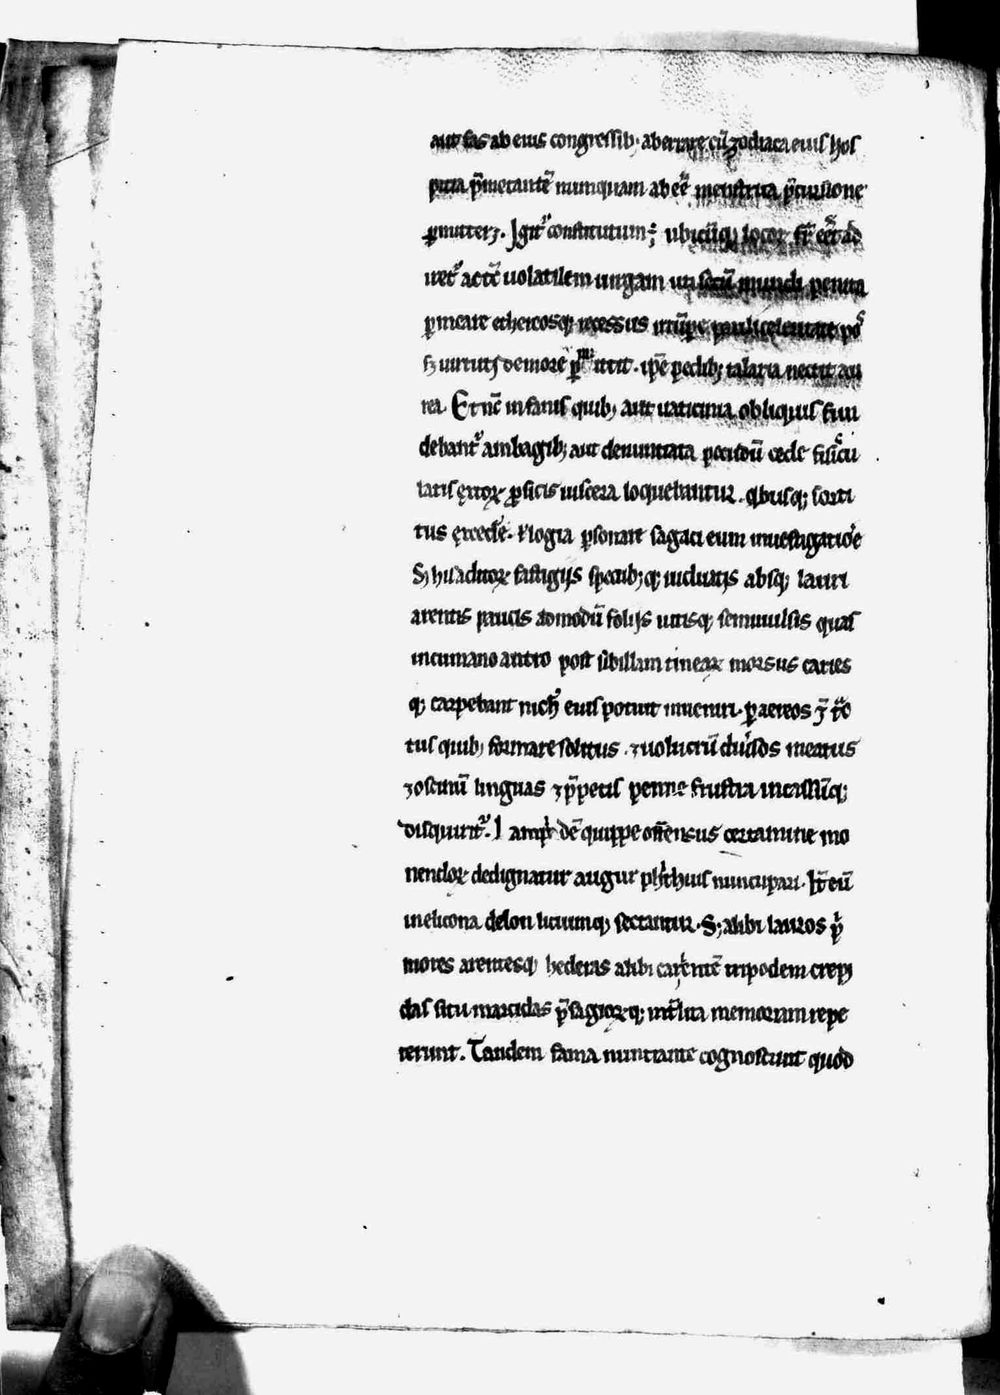 aut fas ab eius congressib; aberrare cū zodiaca eius hos
pitia p̄metantē numquam abeē menstrua p̄cursione
ꝑmitteret. Igit᷑ constitutum ÷ ubicūq; locoꝝ fr̄ eēt ad
uerti
uolatilem uirgam uti secū mundi penita
ꝑmeare ethereosq; recessus
s; uirtutis de more ꝑmittit. ipse pedib; talaria nectit au
rea. Et nc̄ in fanis quib; aut uaticinia obliquis fun
debant᷑ ambagib; aut denuntiata pecudū cede fissicu
latis extoꝝ prosicis uiscera loquebantur. qbusq; sorti
tus excedere. ł logia ꝑsonare sagaci eum inuestigatioe
S; his aditoꝝ fastigijs specub;q; uiduatis absq; lauri
arentis paucis admodū folijs uittisq; semiuulsis quas
in cumano antro post sibillam tinearꝝ morsus caries
q; carpebant nich᷑ eius potuit inueniri. per aereos ⁊ tc̄
tus quib; formare solitus. ⁊ uolucrū diuisos meatus
⁊ oscinū linguas ⁊ p̄petis penne frustra incassūq;
disquirit᷑. Iampridē quippe offensus certamine mo
nendoꝝ dedignatur augur phithius nuncupari. It̄ eū
in elicona delon liciumq; sectantur. S; alibi lauros p̄
mores arentesq; hederas alibi cariētē tripodem crepi
das situ marcidas p̄sagioꝝq; int̄lita memoriam repe
rerunt. Tandem fama nuntiante cognoscunt quod